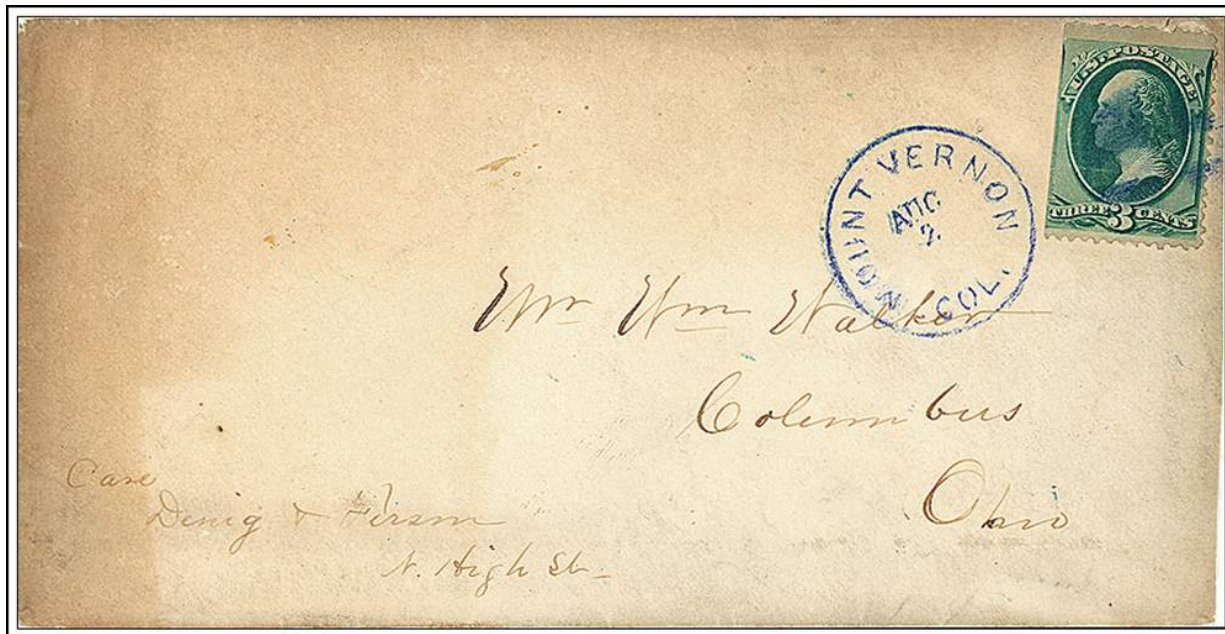 U.S. POSTAGE
THREE 3 CENTS
MOUNT VERNON
COL.
AUG
2
Mr Wm Walker
Columbus
Ohio
Care
Denig &
N. High St